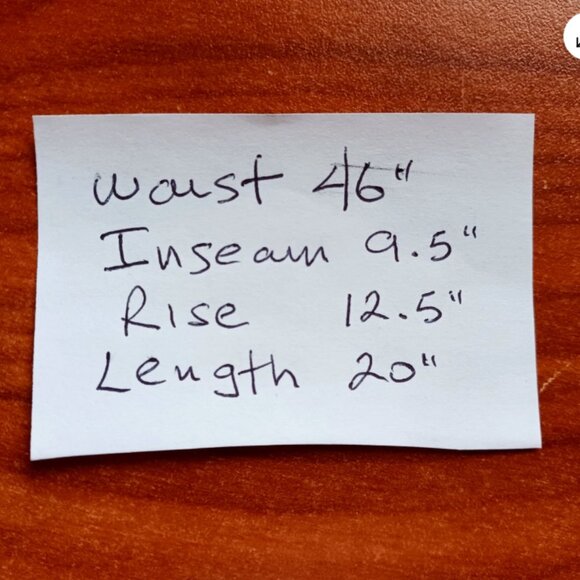 Waist 46"
Inseam 9.5"
Rise 12.5"
Length 20"